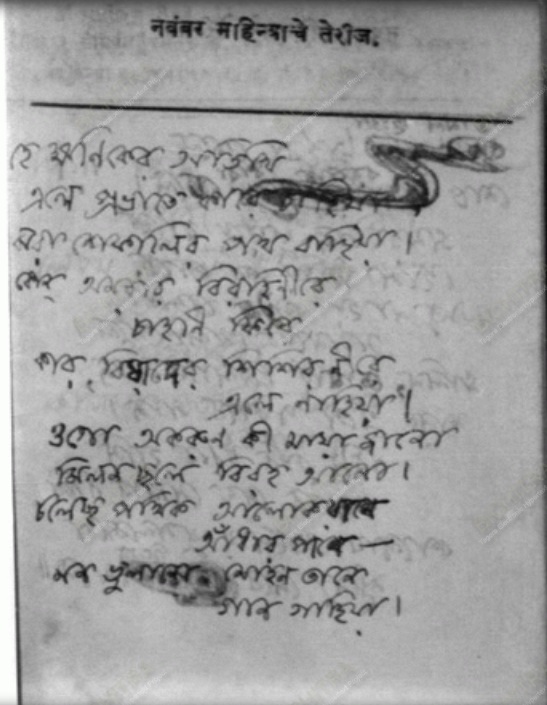 नवंबर माहिन्याचे तेरीज.
হে ক্ষণিকের অতিথি
এলে প্রভাতে কারে চাহিয়া
ঝরা শেফালির পথে বাহিয়া।
কোন্ অমরার বিরহিনীরে
চাহনি ফিরে
কার বিষাদের শিশিরনীরে
এলে নাহিয়া।
ওগো অকরুণ কী মায়া জানো
মিলনছলে বিরহ আনো।
চলেছ পথিক আলোকযানে
আঁধার পানে —
মন ভুলানো মোহন তানে
গান গাহিয়া।